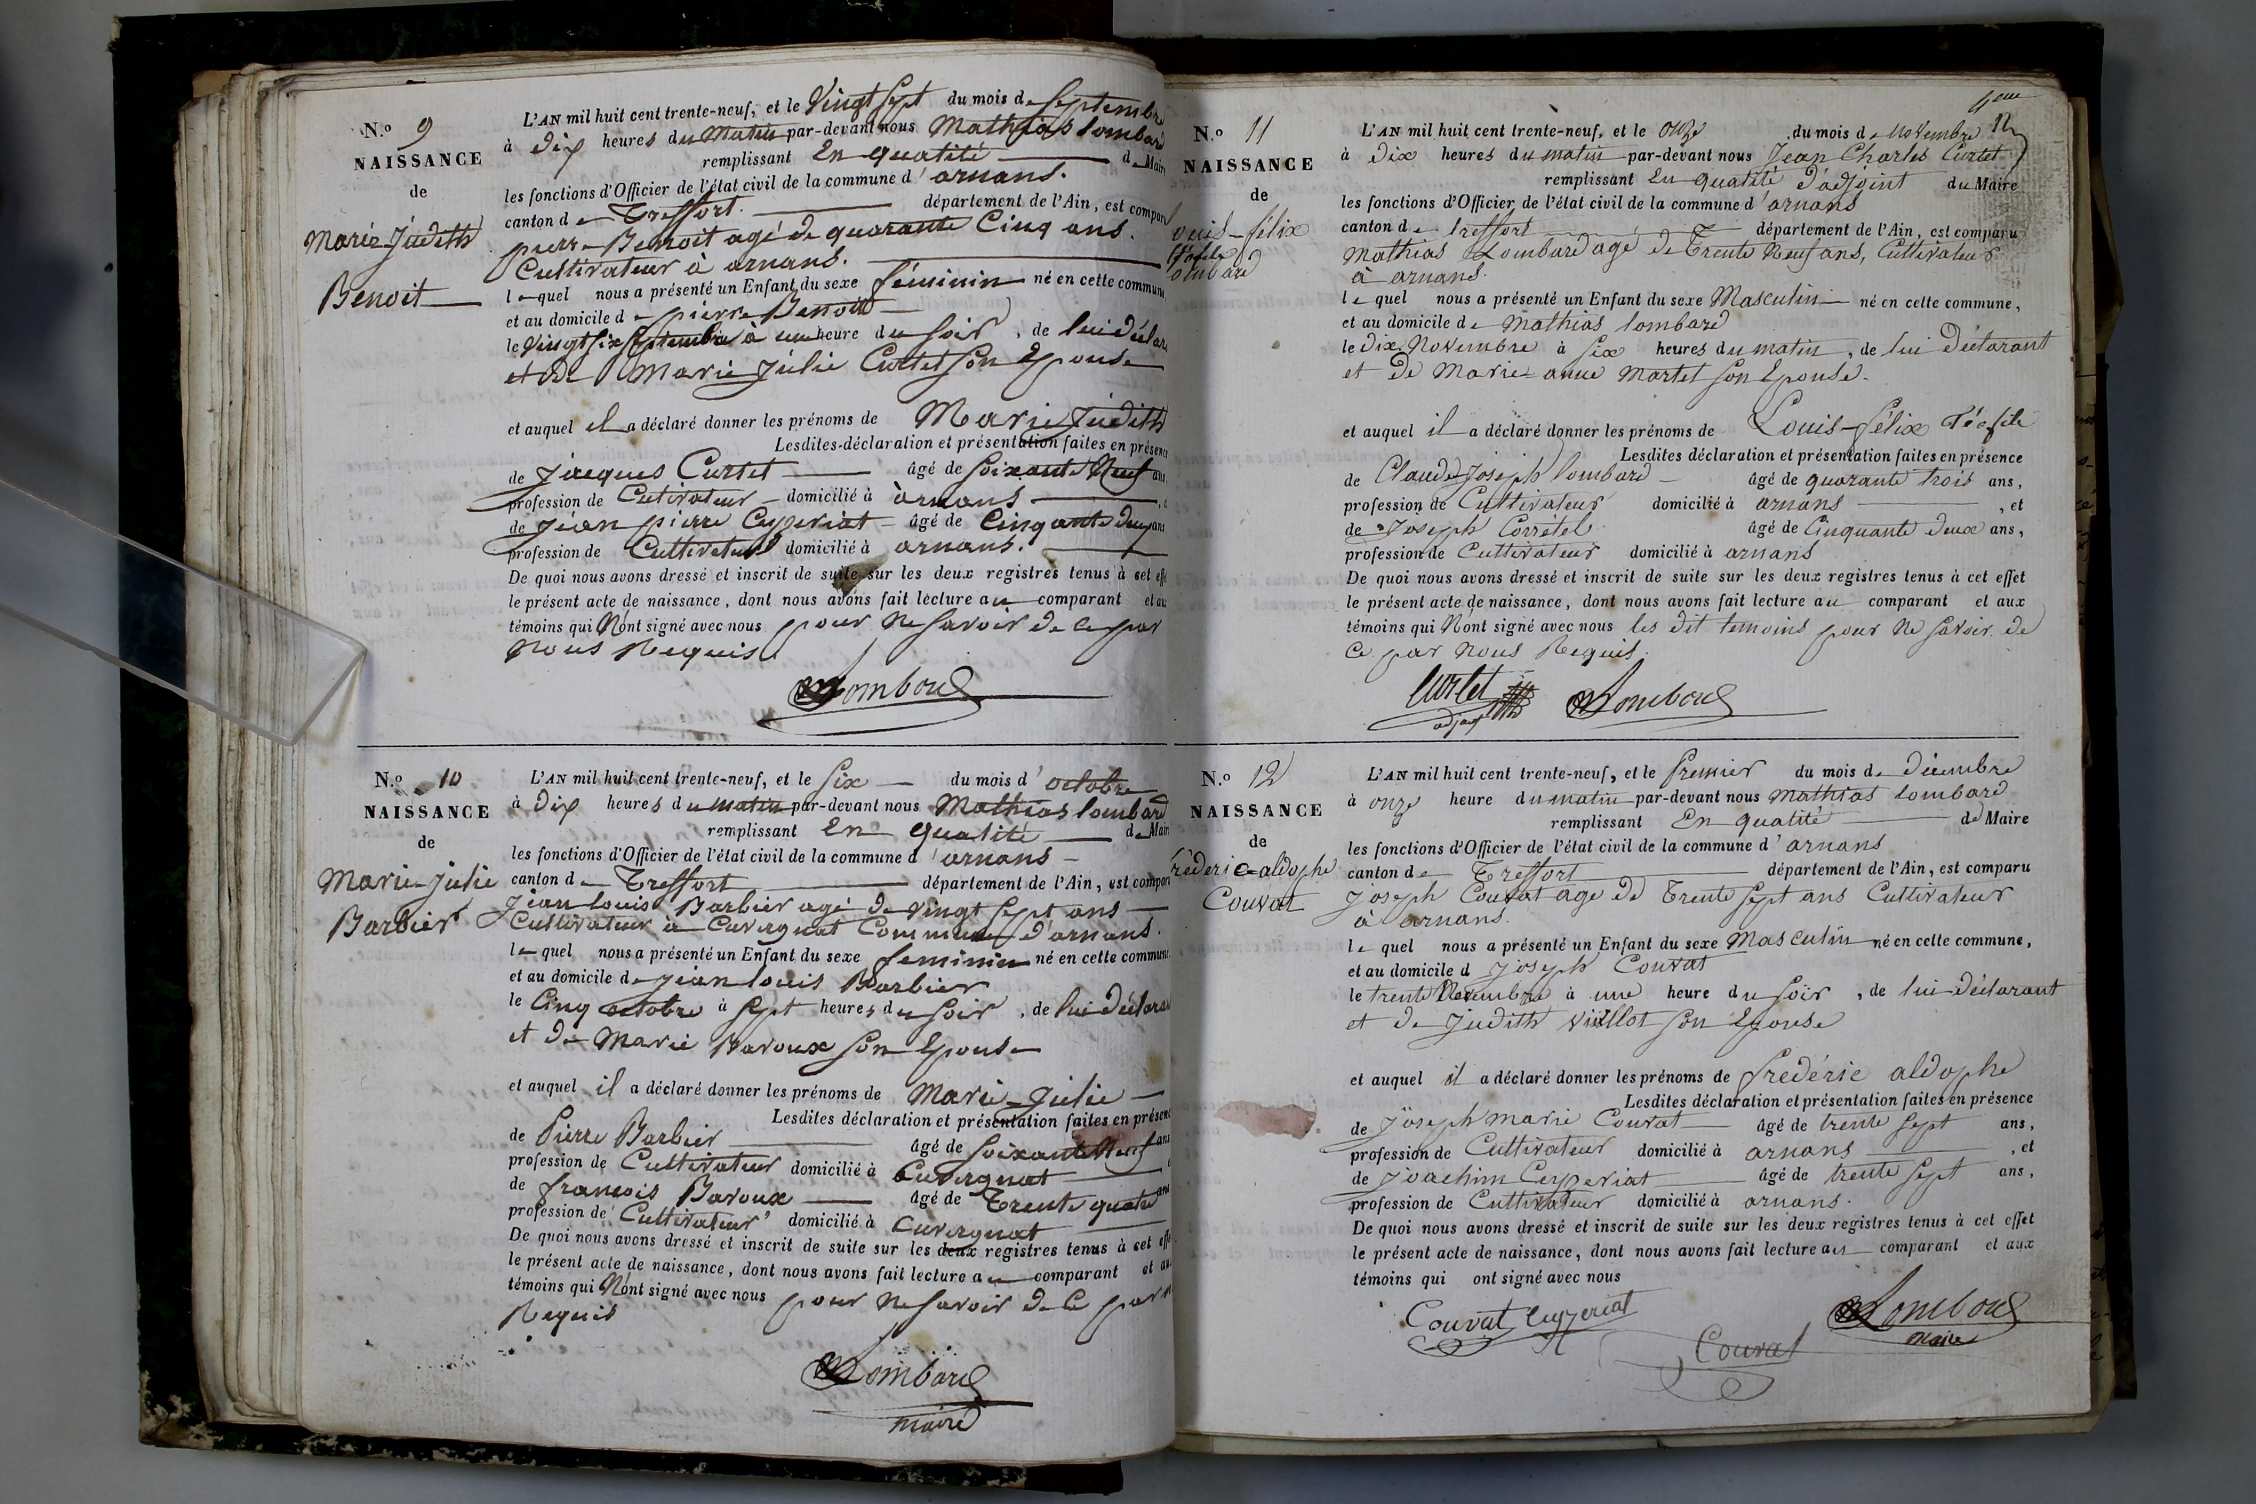 N.º 9
NAISSANCE
de
Marie-Judith
Benoit
L'AN mil huit cent trente-neuf, et le Vingt Sept du mois de Septembre
à dix heures du matin par-devant nous Mathias lombard
remplissant En qualité de Maire
les fonctions d'Officier de l'état civil de la commune d'arnans.
canton de Treffort. département de l'Ain, est comparu
pierre Benoit agé de quarante Cinq ans.
Cultivateur à arnans.
lequel nous a présenté un Enfant du sexe féminin né en cette commune
et au domicile de pierre Benoit
le Vingt Six Septembre à une heure du Soir, de lui déclara
et de Marie Julie Curtet Son Epouse
et auquel il a déclaré donner les prénoms de Marie Judith
Lesdites-déclaration et présentation faites en présence
de Jacques Curtet âgé de Soixante Neuf ans
profession de Cutivateur domicilié à arnans
de Jean pierre Ceyzeriat âgé de Cinqante deux ans
profession de Cultivateur domicilié à arnans.
De quoi nous avons dressé et inscrit de suite sur les deux registres tenus à cet effet
le présent acte de naissance, dont nous avons fait lecture au comparant et au
témoins qui N'ont signé avec nous pour Ne Savoir de Ce par
Nous Requis
Lombard
N.º 10
NAISSANCE
de
Marie-Julie
Barbier
L'AN mil huit cent trente-neuf, et le Six du mois d'octobre
à dix heures du matin par-devant nous Mathias lombard
remplissant En qualité de Maire
les fonctions d'Officier de l'état civil de la commune d'arnans
canton de Treffort département de l'Ain, est comparu
Jean louis Barbier agé de vingt Sept ans
Cultivateur à Cuvergnat Commune d'arnans.
lequel nous a présenté un Enfant du sexe feminin né en cette commune
et au domicile de Jean louis Barbier
le Cinq octobre à Sept heures du Soir, de lui déclara
et de Marie Baroux Son Epouse
et auquel il a déclaré donner les prénoms de Marie-Julie
Lesdites déclaration et présentation faites en présence
de Pierre Barbier âgé de Soixante Neuf ans
profession de Cultivateur domicilié à Cuvergnat
de francois Baroux âgé de Trente quatre ans
profession de Cultivateur domicilié à Cuvergnat
De quoi nous avons dressé et inscrit de suite sur les deux registres tenus à cet effet
le présent acte de naissance, dont nous avons fait lecture au comparant et au
témoins qui N'ont signé avec nous pour Ne Savoir de Ce par
Requis
Lombard
maire
N.º 11
NAISSANCE
de
Louis-félix
Téofile
Lombard
L'AN mil huit cent trente-neuf, et le onze du mois de Novembre
à dix heures du matin par-devant nous Jean Charles Curtet
remplissant En qualité d'adjoint du Maire
les fonctions d'Officier de l'état civil de la commune d'arnans
canton de treffort département de l'Ain, est comparu
Mathias Lombard agé de Trente Neuf ans, Cultivateur
à arnans.
lequel nous a présenté un Enfant du sexe Masculin né en cette commune,
et au domicile de Mathias lombard
le dix Novembre à Six heures du matin, de lui déclarant
et de Marie-anne Martet Son Epouse.
et auquel il a déclaré donner les prénoms de Louis-félix Téofile
Lesdites déclaration et présentation faites en présence
de Claude-Joseph lombard âgé de quarante trois ans,
profession de Cultivateur domicilié à arnans, et
de Joseph Corretel âgé de Cinquante deux ans,
profession de Cultivateur domicilié à arnans
De quoi nous avons dressé et inscrit de suite sur les deux registres tenus à cet effet
le présent acte de naissance, dont nous avons fait lecture au comparant et aux
témoins qui N'ont signé avec nous les dit temoins pour Ne Savoir de
Ce par Nous Requis.
Curtet Lombard
adjoint
N.º 12
NAISSANCE
de
frédéric-aldophe
Couvat
L'AN mil huit cent trente-neuf, et le Premier du mois de décembre
à onze heure du matin par-devant nous Mathias lombard
remplissant En qualité de Maire
les fonctions d'Officier de l'état civil de la commune d'arnans
canton de Treffort département de l'Ain, est comparu
Joseph Couvat age de Trente Sept ans Cultivateur
à arnans.
lequel nous a présenté un Enfant du sexe Masculin né en cette commune,
et au domicile d Joseph Couvat
le trente Novembre à une heure du Soir, de lui déclarant
et de Judith Vuillot Son Epouse
et auquel il a déclaré donner les prénoms de frédéric aldophe
Lesdites déclaration et présentation faites en présence
de Joseph Marie Couvat âgé de trente Sept ans,
profession de Cultivateur domicilié à arnans, et
de Joachim Ceyzeriat âgé de trente Sept ans,
profession de Cultivateur domicilié à arnans.
De quoi nous avons dressé et inscrit de suite sur les deux registres tenus à cet effet
le présent acte de naissance, dont nous avons fait lecture au comparant et aux
témoins qui ont signé avec nous
Couvat Ceyzeriat Lombard
Couvat maire